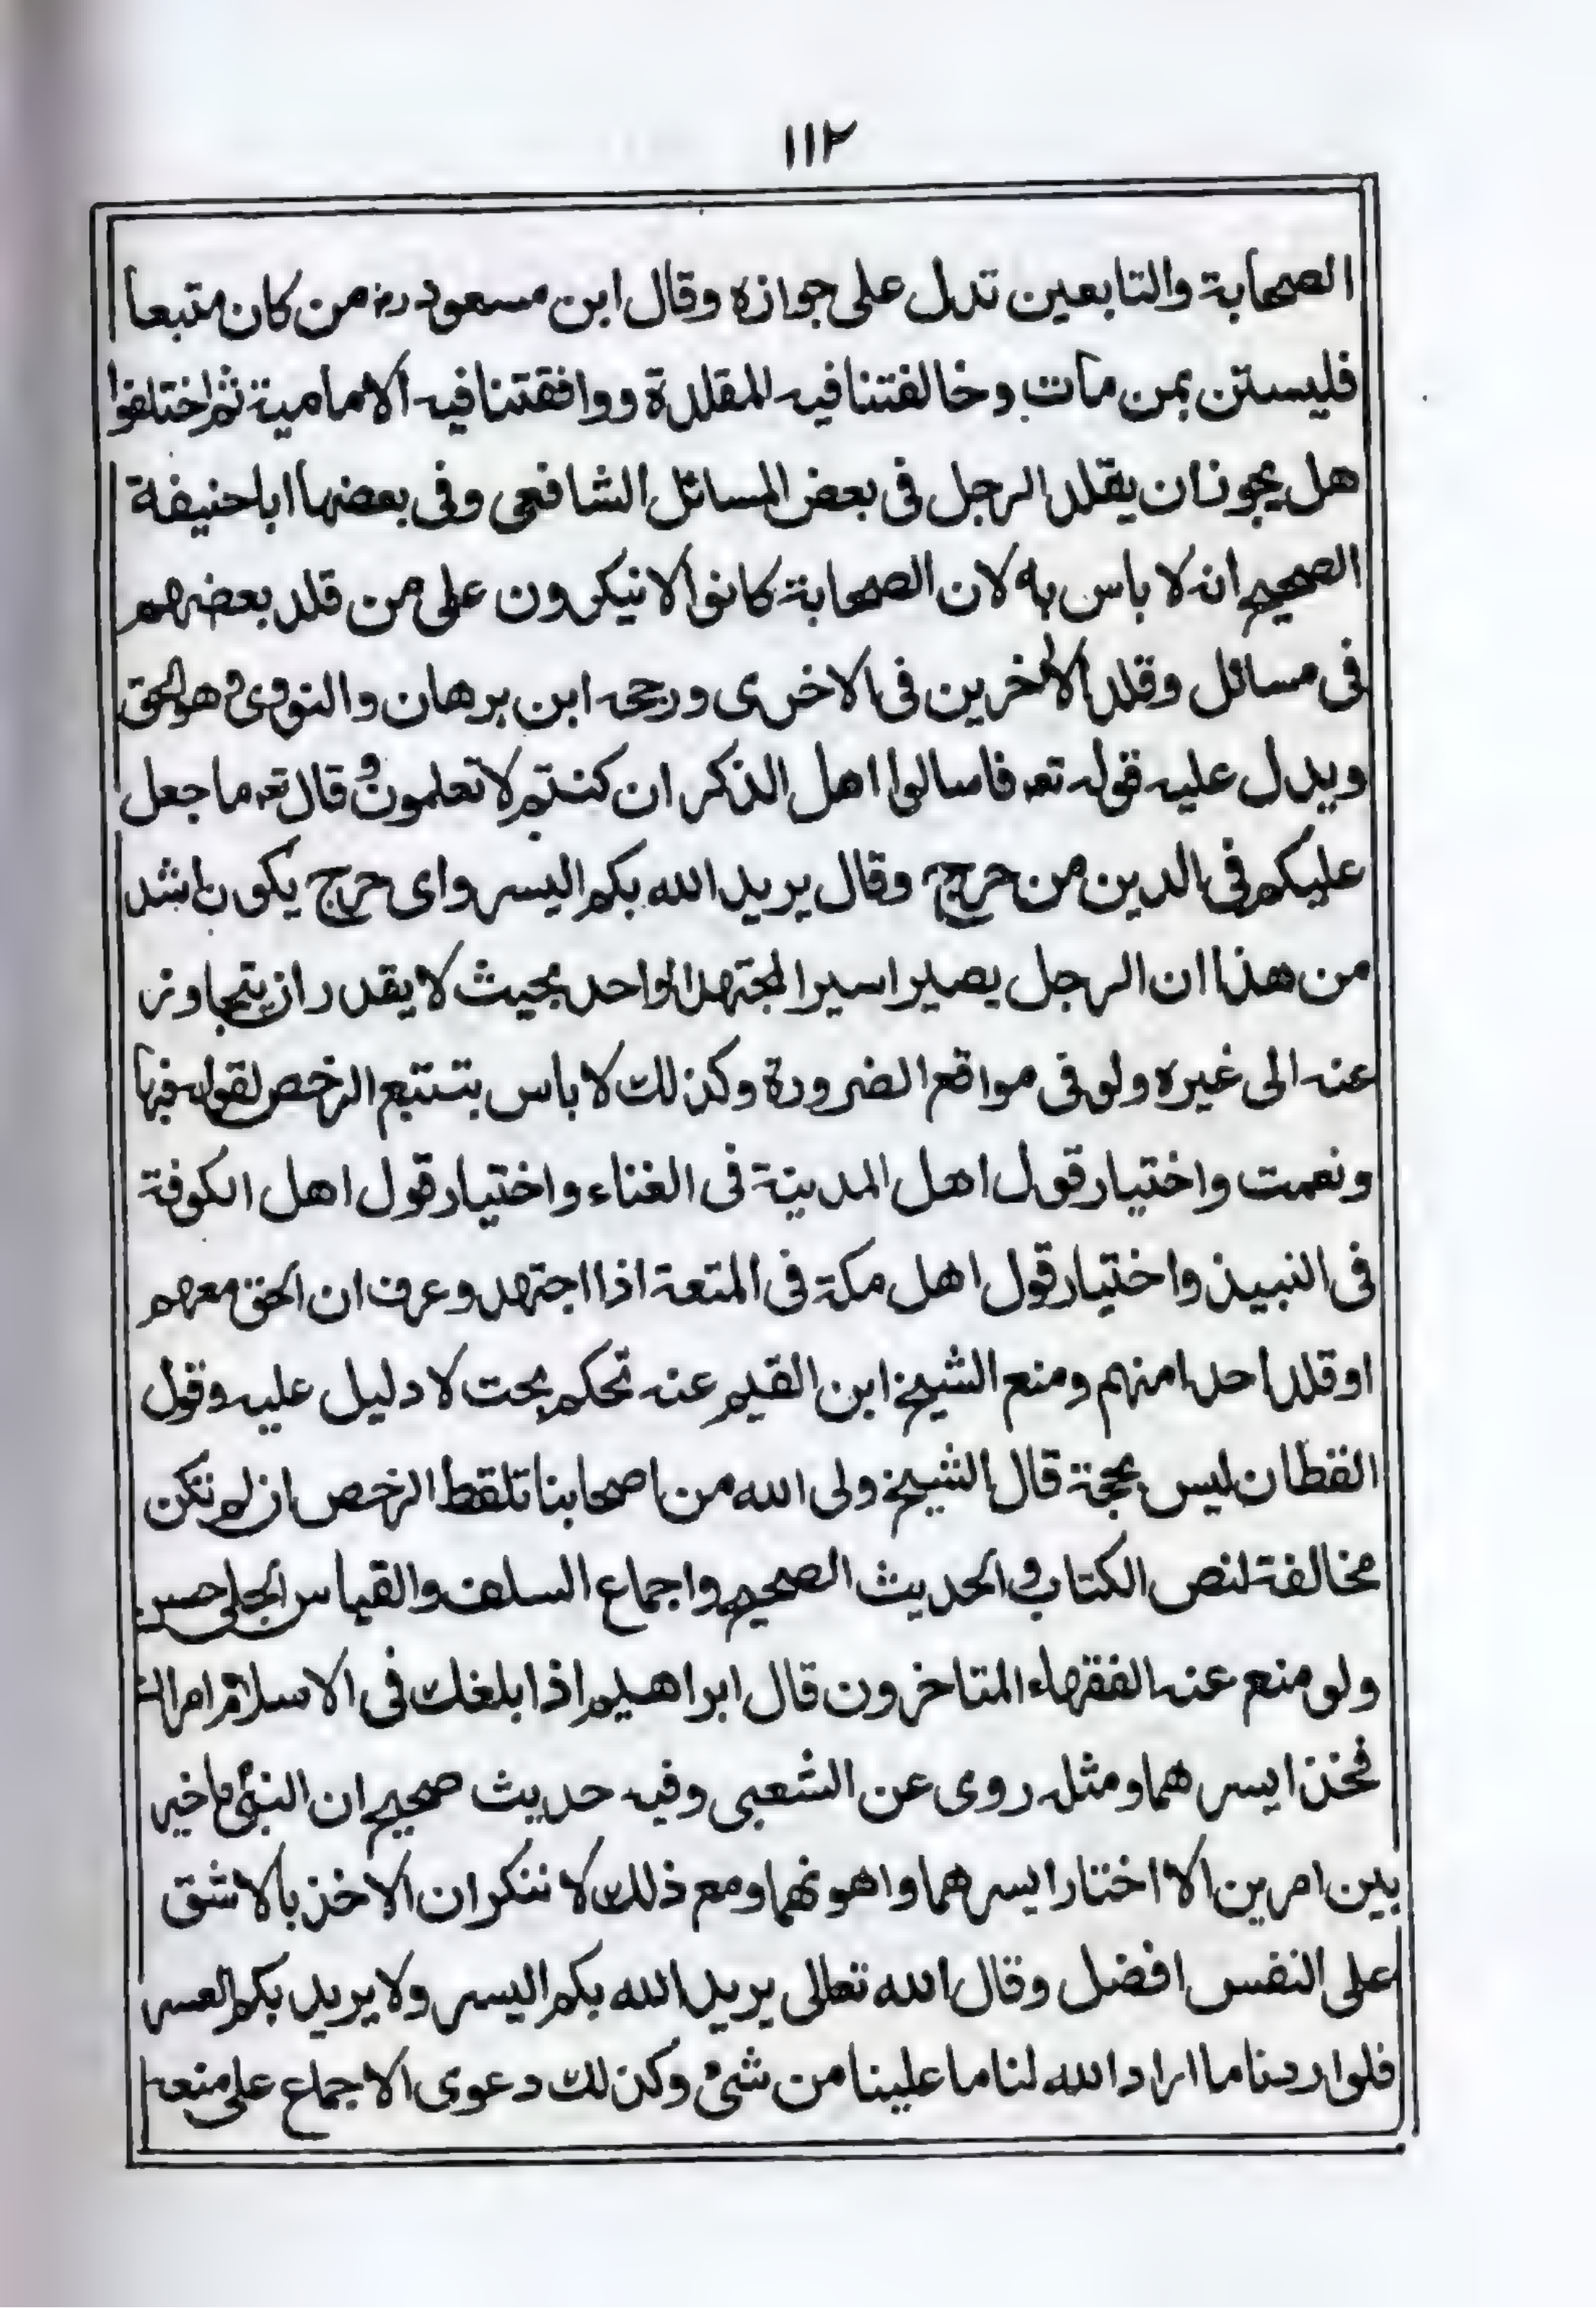 ١١٢
الصحابة والتابعين تدل على جوازه وقال ابن مسعود رض من كان متبعا
فليستن بمن مات وخالفتنا فيه المقلدة ووافقتنا فيه الامامية ثم اختلفوا
هل يجوز ان يقلد الرجل فى بعض المسائل الشافعى وفى بعضها اباحنيفة
الصحيح انه لا باس به لان الصحابة كانوا لا ينكرون على من قلد بعضهم
فى مسائل وقلد الأخرين فى الاخرى ورجحه ابن برهان والنووى وهو الحق
ويدل عليه قوله تعه فاسالوا اهل الذكر ان كنتم لا تعلمون وقال تعه ما جعل
عليكم فى الدين من حرج وقال يريد الله بكم اليسر واى حرج يكون اشد
من هذا ان الرجل يصير اسير المجتهد الواحد بحيث لا يقدر ان يتجاوز
عنه الى غيره ولو فى مواقع الضرورة وكذلك لا باس بتتبع الرخص لقوله فبها
ونعمت واختيار قول اهل المدينة فى الغناء واختيار قول اهل الكوفة
فى النبيذ واختيار قول اهل مكة فى المتعة اذا اجتهد وعرف ان الحق معهم
او قلد احدا منهم ومنع الشيخ ابن القيم عنه تحكم بحت لا دليل عليه وقول
القطان ليس بحجة قال الشيخ ولى الله من اصحابنا تلقط الرخص ان لم تكن
مخالفة لنص الكتاب والحديث الصحيح واجماع السلف والقياس الجلى حسن
ولو منع عنه الفقهاء المتاخرون قال ابراهيم اذا بلغك فى الاسلام امران
فخذ ايسرهما ومثله روى عن الشعبى وفيه حديث صحيح ان النبى ما خير
بين امرين الا اختار ايسرهما واهونهما ومع ذلك لا ننكر ان الاخذ بالاشق
على النفس افضل وقال الله تعالى يريد الله بكم اليسر ولا يريد بكم العسر
فلو اردنا ما اراد الله لنا ما علينا من شئ وكذلك دعوى الاجماع على منعه